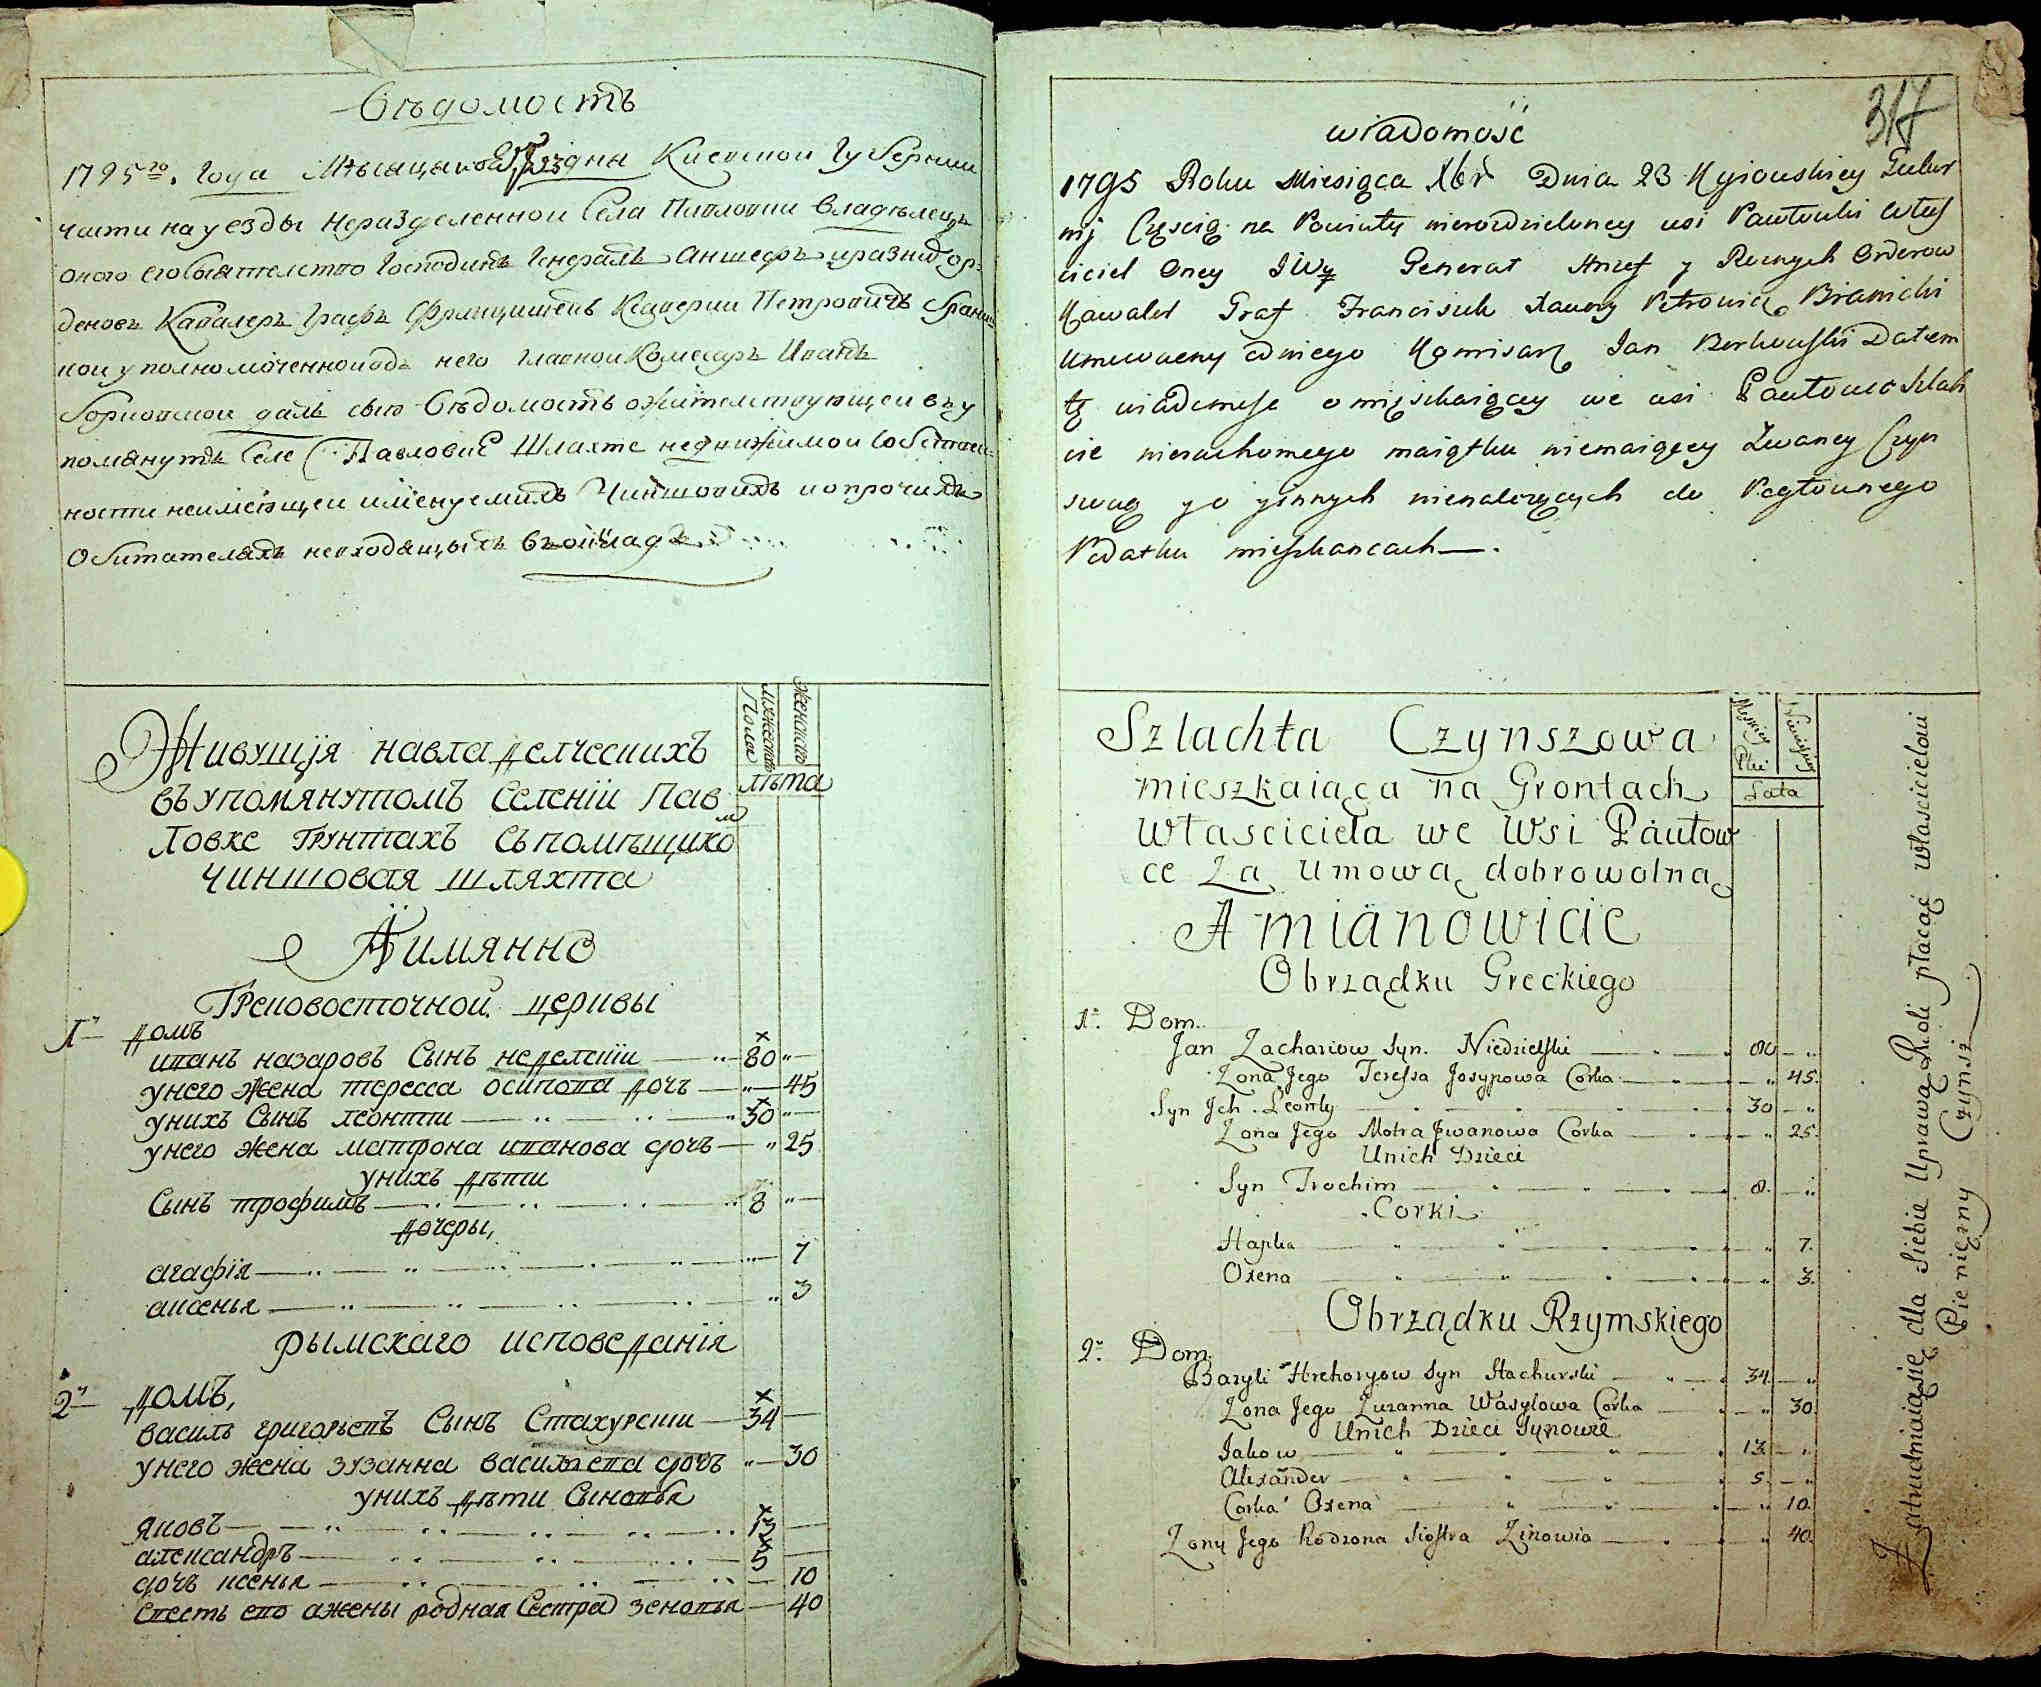 Вѣдомость
1795го. Года Мѣсяца 23 дня Киевской Губернии
части на уезды неразделенной Села Павловки владѣлецъ
оного его Сиятелство Господинъ Генералъ Аншефъ и разнихъ ор
деновъ Кавалеръ Графъ Францишекъ Ксаверии Петровичъ Браниц
кои уполномоченнои одъ него главнои Комесаръ Иванъ
Борковскои далъ сею Вѣдомость о жителствующеи въ у
помянутѣ Селе Павловке Шляхте недвижимои собствен
ности неимѣющеи имѣнуемихъ Чиншовихъ и о прочихъ
Обитателяхъ невходящыхъ въ окладъ
женского
мужеска
Пола
лѣта
Живущія навладелческихъ
въ упомянутомъ Селеніи Пав
ловке грунтахъ съ помѣщико
м
чиншовая шляхта
Аимянно
Грековосточной церквы
1 домъ
иванъ назаровъ Сынъ неделскіи 80
унего жена тересса осипова дочъ 45
унихъ Сынъ леонтии 30
унего жена матрона иванова дочъ 25
унихъ дѣти
Сынъ трофимъ 8
дочеры,
агафія 7
аксенья 3
рымскаго исповеданія
2 домъ,
василъ григорьевъ Сынъ Стахурскии 34
унего жена зузанна василіева дочъ 30
унихъ дѣти Сыновья
яковъ 13
александръ 5
дочъ ксенья 10
Своесть ево а жены родная Сестра зеновья 40
317
wiadomość
1795 Roku Miesiąca Xbr Dnia 23 Kyiowskiey Guber
nij Częscią na Powiaty nierozdzieloney wsi Pawłowki Włas
ciciel Oney JW Generał Anszef y Roznych Orderow
Kawaler Graf Franciszek Xawery Petrowicz Branicki
Umocowany odniego Komisarz Jan Borkowski Dałem
tę wiadomosc o mięszkaiący we wsi Pawłowc Szlach
cie nieruchomego maiątku niemaiącey Zwaney Czyn
szową y o ynnych nienależących do Pogłownego
Podatku mieszkancach
Męskiey
Płci
Lata
Szlachta Czynszowa
mieszkaiąca na Grontach
własciciela we Wsi Pawłow
ce Za Umową dobrowolną
A mianowicie
Obrządku Greckiego
1. Dom.
Jan Zachariow Syn. Niedzielski 80
Zona Jego Teressa Josypowa Corka 45.
Syn Jch. Leonty 30
Zona Jego Motra Jwanowa Corka 25.
Unich Dzieci
Syn Trochim 8.
Corki
Hapka 7.
Oxena 3.
Obrządku Rzymskiego
2. Dom.
Bazyli Hrehoryow Syn Stachurski 34
Zona Jego Zuzanna Wasylowa Corka 30
Unich Dzieci Synowie
Jakow 13
Alexander 5.
Corka Oxena 10.
Zony Jego Rodzona Siostra Zinowia 40.
Zatrudniaiąsię dla Siebie Uprawą Roli płacąc własciscielowi
Pieniężny Czynsz